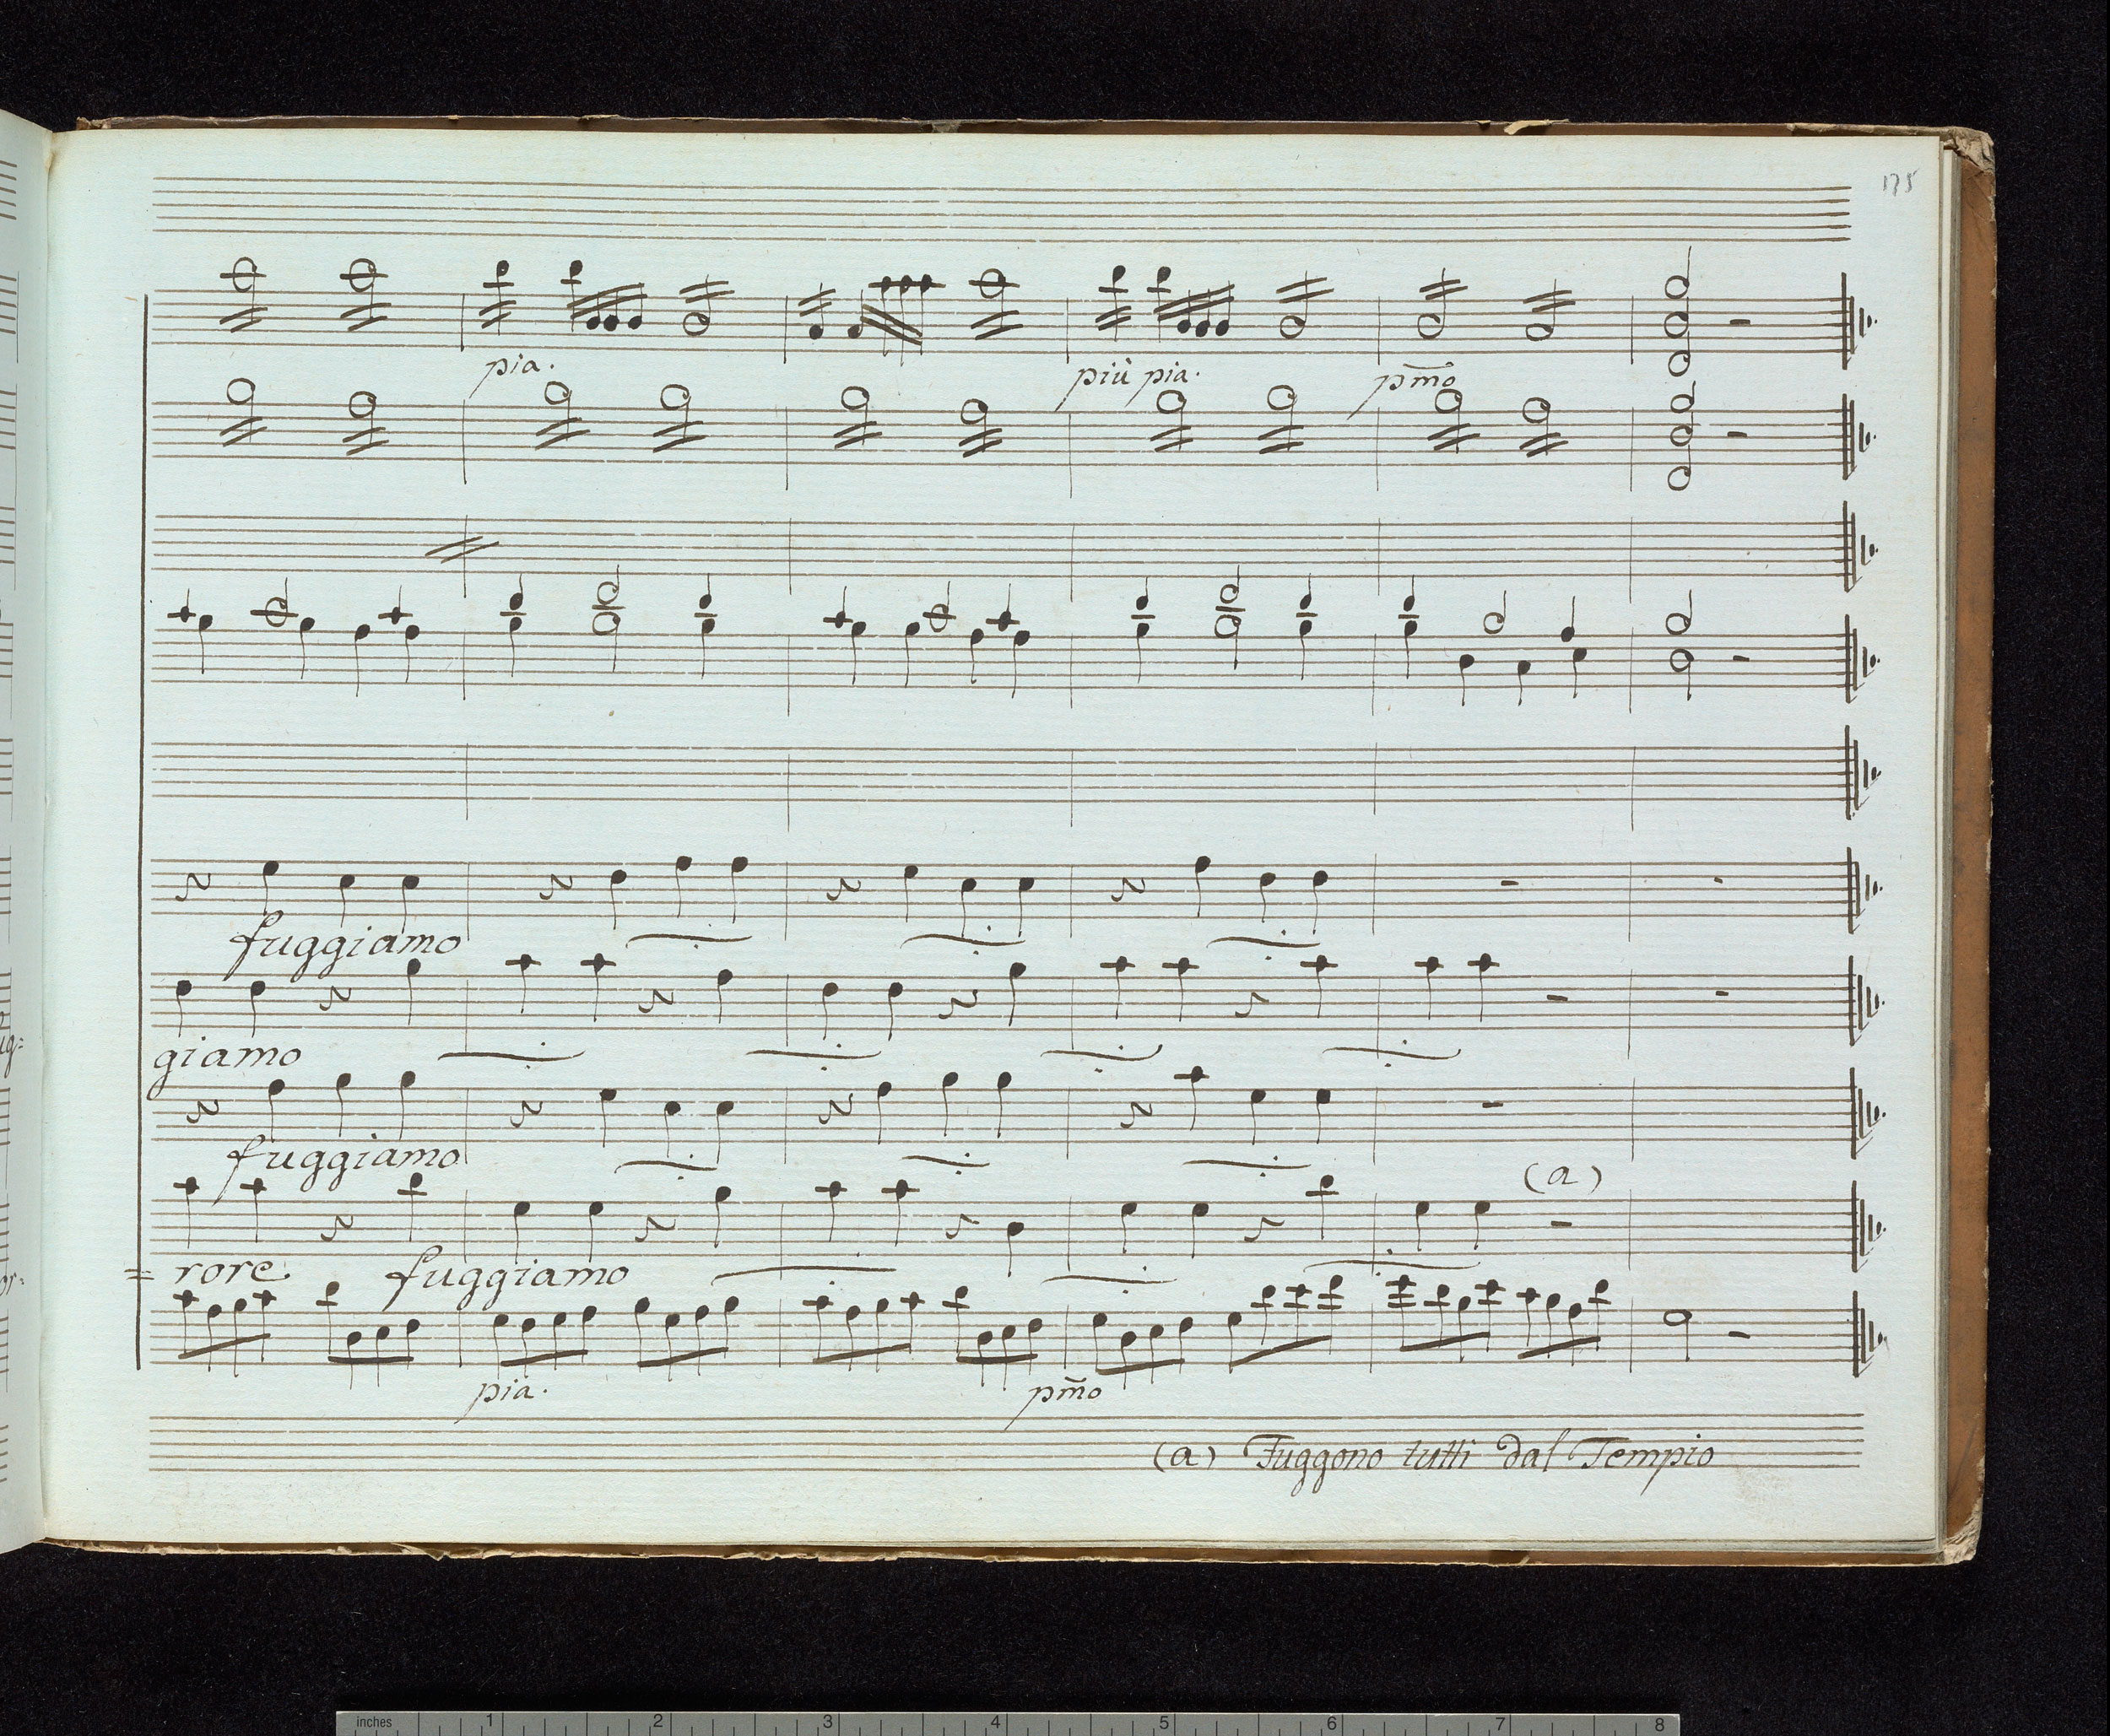 175
pia.
più pia.
pmo
fuggiamo
giamo
fuggiamo
(a)
= rore fuggiamo
pia.
pmo
(a) Fuggono tutti dal Tempio
inches 1 2 3 4 5 6 7 8